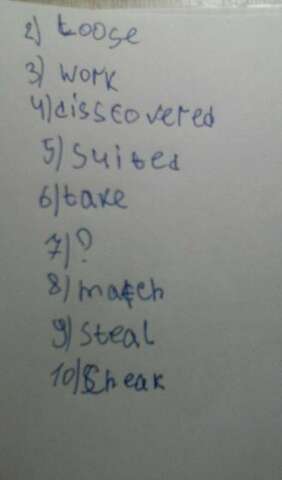 2) Loose
3) work
4) disscovered
5) suited
6) take
7) ?
8) match
9) steal
10) Cheak